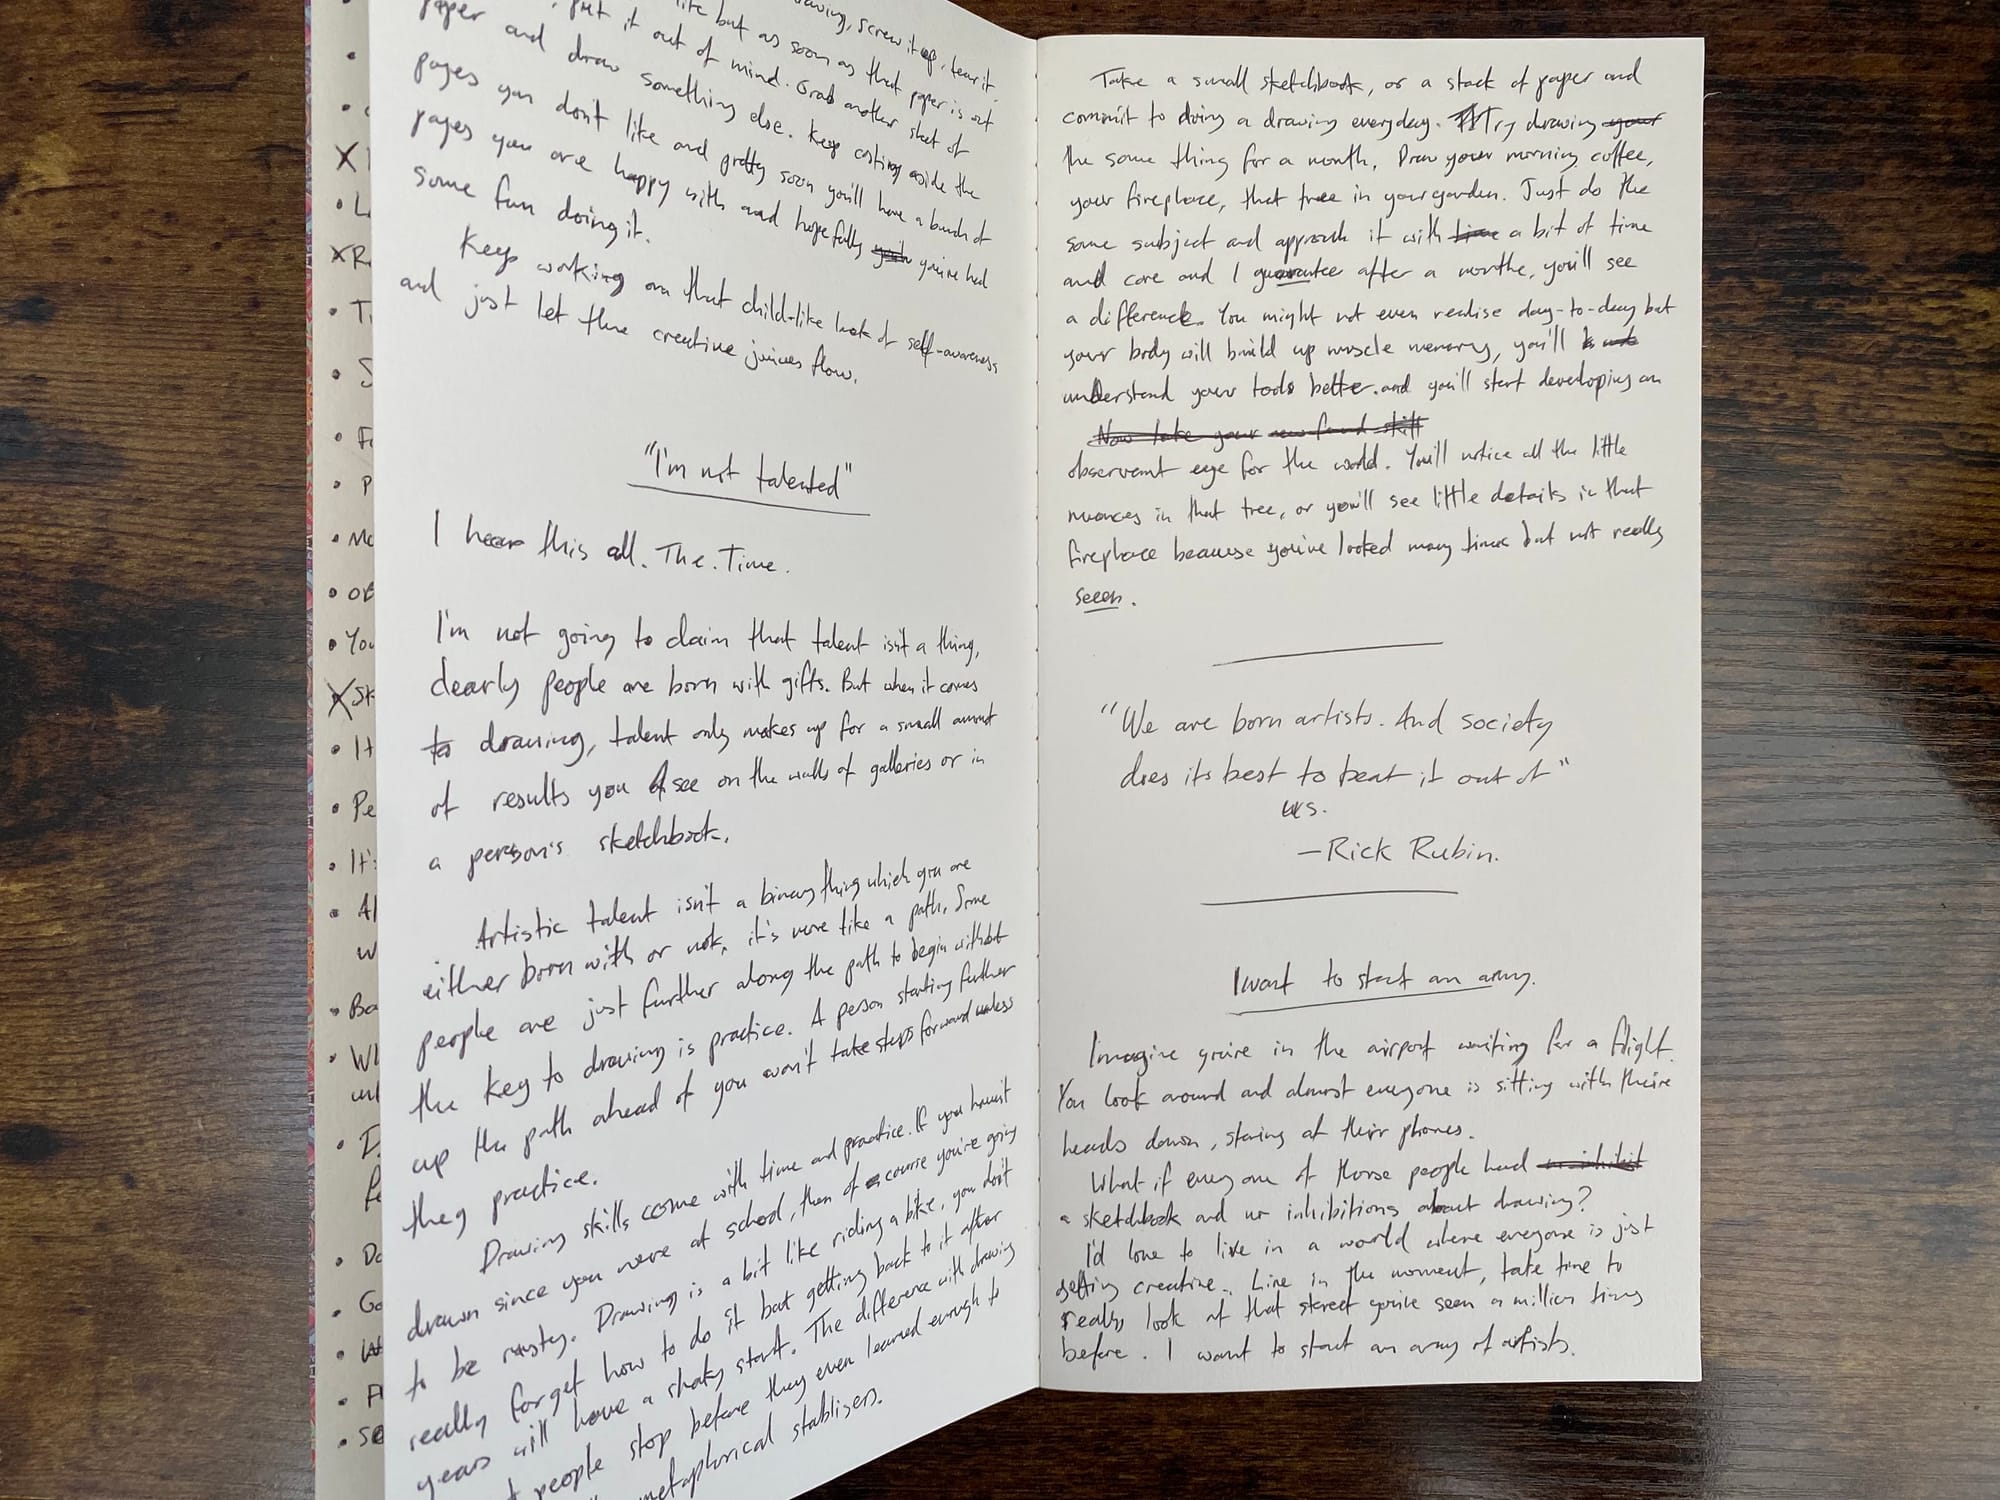 drawing, screw it up, tear it
put it out of mind. Grab another sheet of
like but as soon as that paper is out
paper and draw something else. Keep casting aside the
pages you don't like and pretty soon you'll have a bunch of
pages you are happy with and hopefully you've had
some fun doing it.
Keep working on that child-like lack of self-awareness
and just let the creative juices flow.
"I'm not talented"
I hear this all. The. Time.
I'm not going to claim that talent isn't a thing,
clearly people are born with gifts. But when it comes
to drawing, talent only makes up for a small amount
of results you see on the walls of galleries or in
a person's sketchbook.
Artistic talent isn't a binary thing which you are
either born with or not, it's more like a path. Some
people are just further along the path to begin without
the key to drawing is practice. A person starting further
up the path ahead of you won't take steps forward unless
they practice.
Drawing skills come with time and practice. If you haven't
drawn since you were at school, then of course you're going
to be rusty. Drawing is a bit like riding a bike, you don't
really forget how to do it but getting back to it after
years will have a shaky start. The difference with drawing
people stop before they even learned enough to
metaphorical stablisers.
Take a small sketchbook, or a stack of paper and
commit to doing a drawing everyday. Try drawing your
the same thing for a month. Draw your morning coffee,
your fireplace, that tree in your garden. Just do the
same subject and approach it with time a bit of time
and care and I guarantee after a monthe, you'll see
a difference. You might not even realise day-to-day but
your body will build up muscle memory, you'll
understand your tools better. and you'll start developing an
Now take your new found skill
observant eye for the world. You'll notice all the little
nuances in that tree, or you'll see little details in that
fireplace because you've looked many times but not really
seen.
"We are born artists. And society
does its best to beat it out of"
us.
—Rick Rubin.
I want to start an army.
Imagine you're in the airport waiting for a flight.
You look around and almost everyone is sitting with their
heads down, staring at their phones.
What if every one of those people had
a sketchbook and no inhibitions about drawing?
I'd love to live in a world where everyone is just
getting creative. Live in the moment, take time to
really look at that street you've seen a million times
before. I want to start an army of artists.